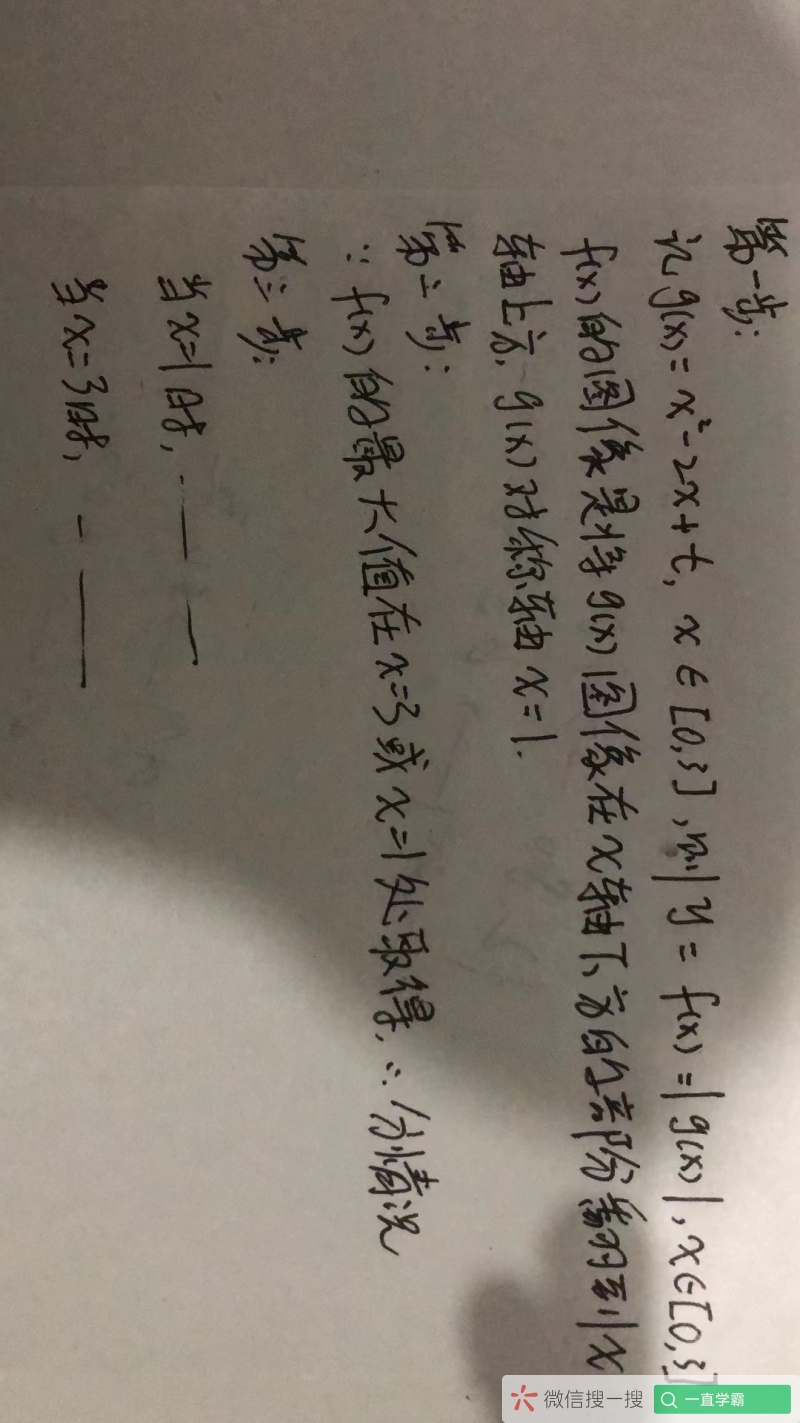 第一步:
记g(x)=x²-2x+t, x∈[0,3],则y=f(x)=|g(x)|,x∈[0,3]
f(x)的图像是将g(x)图像在x轴下方的部阶翻到x
轴上方, g(x)对称轴x=1.
第二步:
∵f(x)的最大值在x=3或x=1处取得,∴分情况
第三步:
当x=1时,
当x=3时,
微信搜一搜
一直学霸